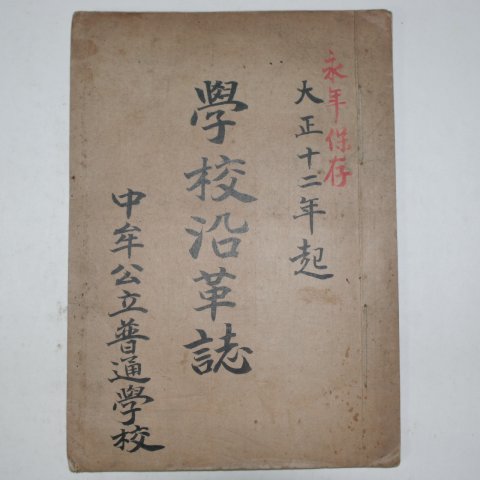 永年保存
大正十二年起
學校沿革誌
中牟公立普通學校